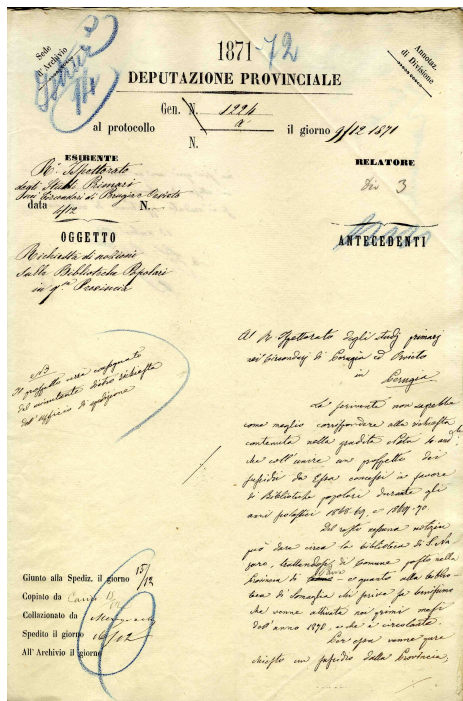 Sede
d'Archivio
Annotaz.
di Divisione
1871-72
DEPUTAZIONE PROVINCIALE
Gen. N. 1224
al protocollo
il giorno 9/12 1871
N.
ESIBENTE
R.° Ispettorato
degli Studi Primari
nei Circondari di Perugia e Orvieto
data 1/12 N.
RELATORE
Div 3
OGGETTO
Richiesta di notizie
sulle Biblioteche Popolari
in q.ta Provincia
ANTECEDENTI
Il prospetto sarà consegnato
dal minutante dietro richiesta
dell'ufficio di spedizione
Al R. Ispettorato degli studj primarj
nei Circondarj di Perugia ed Orvieto
in
Perugia
La scrivente non saprebbe
come meglio corrispondere alla richiesta
contenuta nella gradita Nota
che coll'unire un prospetto dei
sussidi da Essa concessi in favore
di Biblioteche popolari durante gli
anni scolastici 1868-69, e 1869-70.
Del resto nessuna notizia
può dare circa la biblioteca di
comune posto nella
Provincia di
e quanto alla biblio-
teca di
che venne attivata nei primi mesi
dell'anno 1872, e che è circolante.
Per essa venne pure
chiesto un sussidio dalla Provincia,
Giunto alla Spediz. il giorno 15/12
Copiato da
Collazionato da
Spedito il giorno 16/12
All' Archivio il giorno